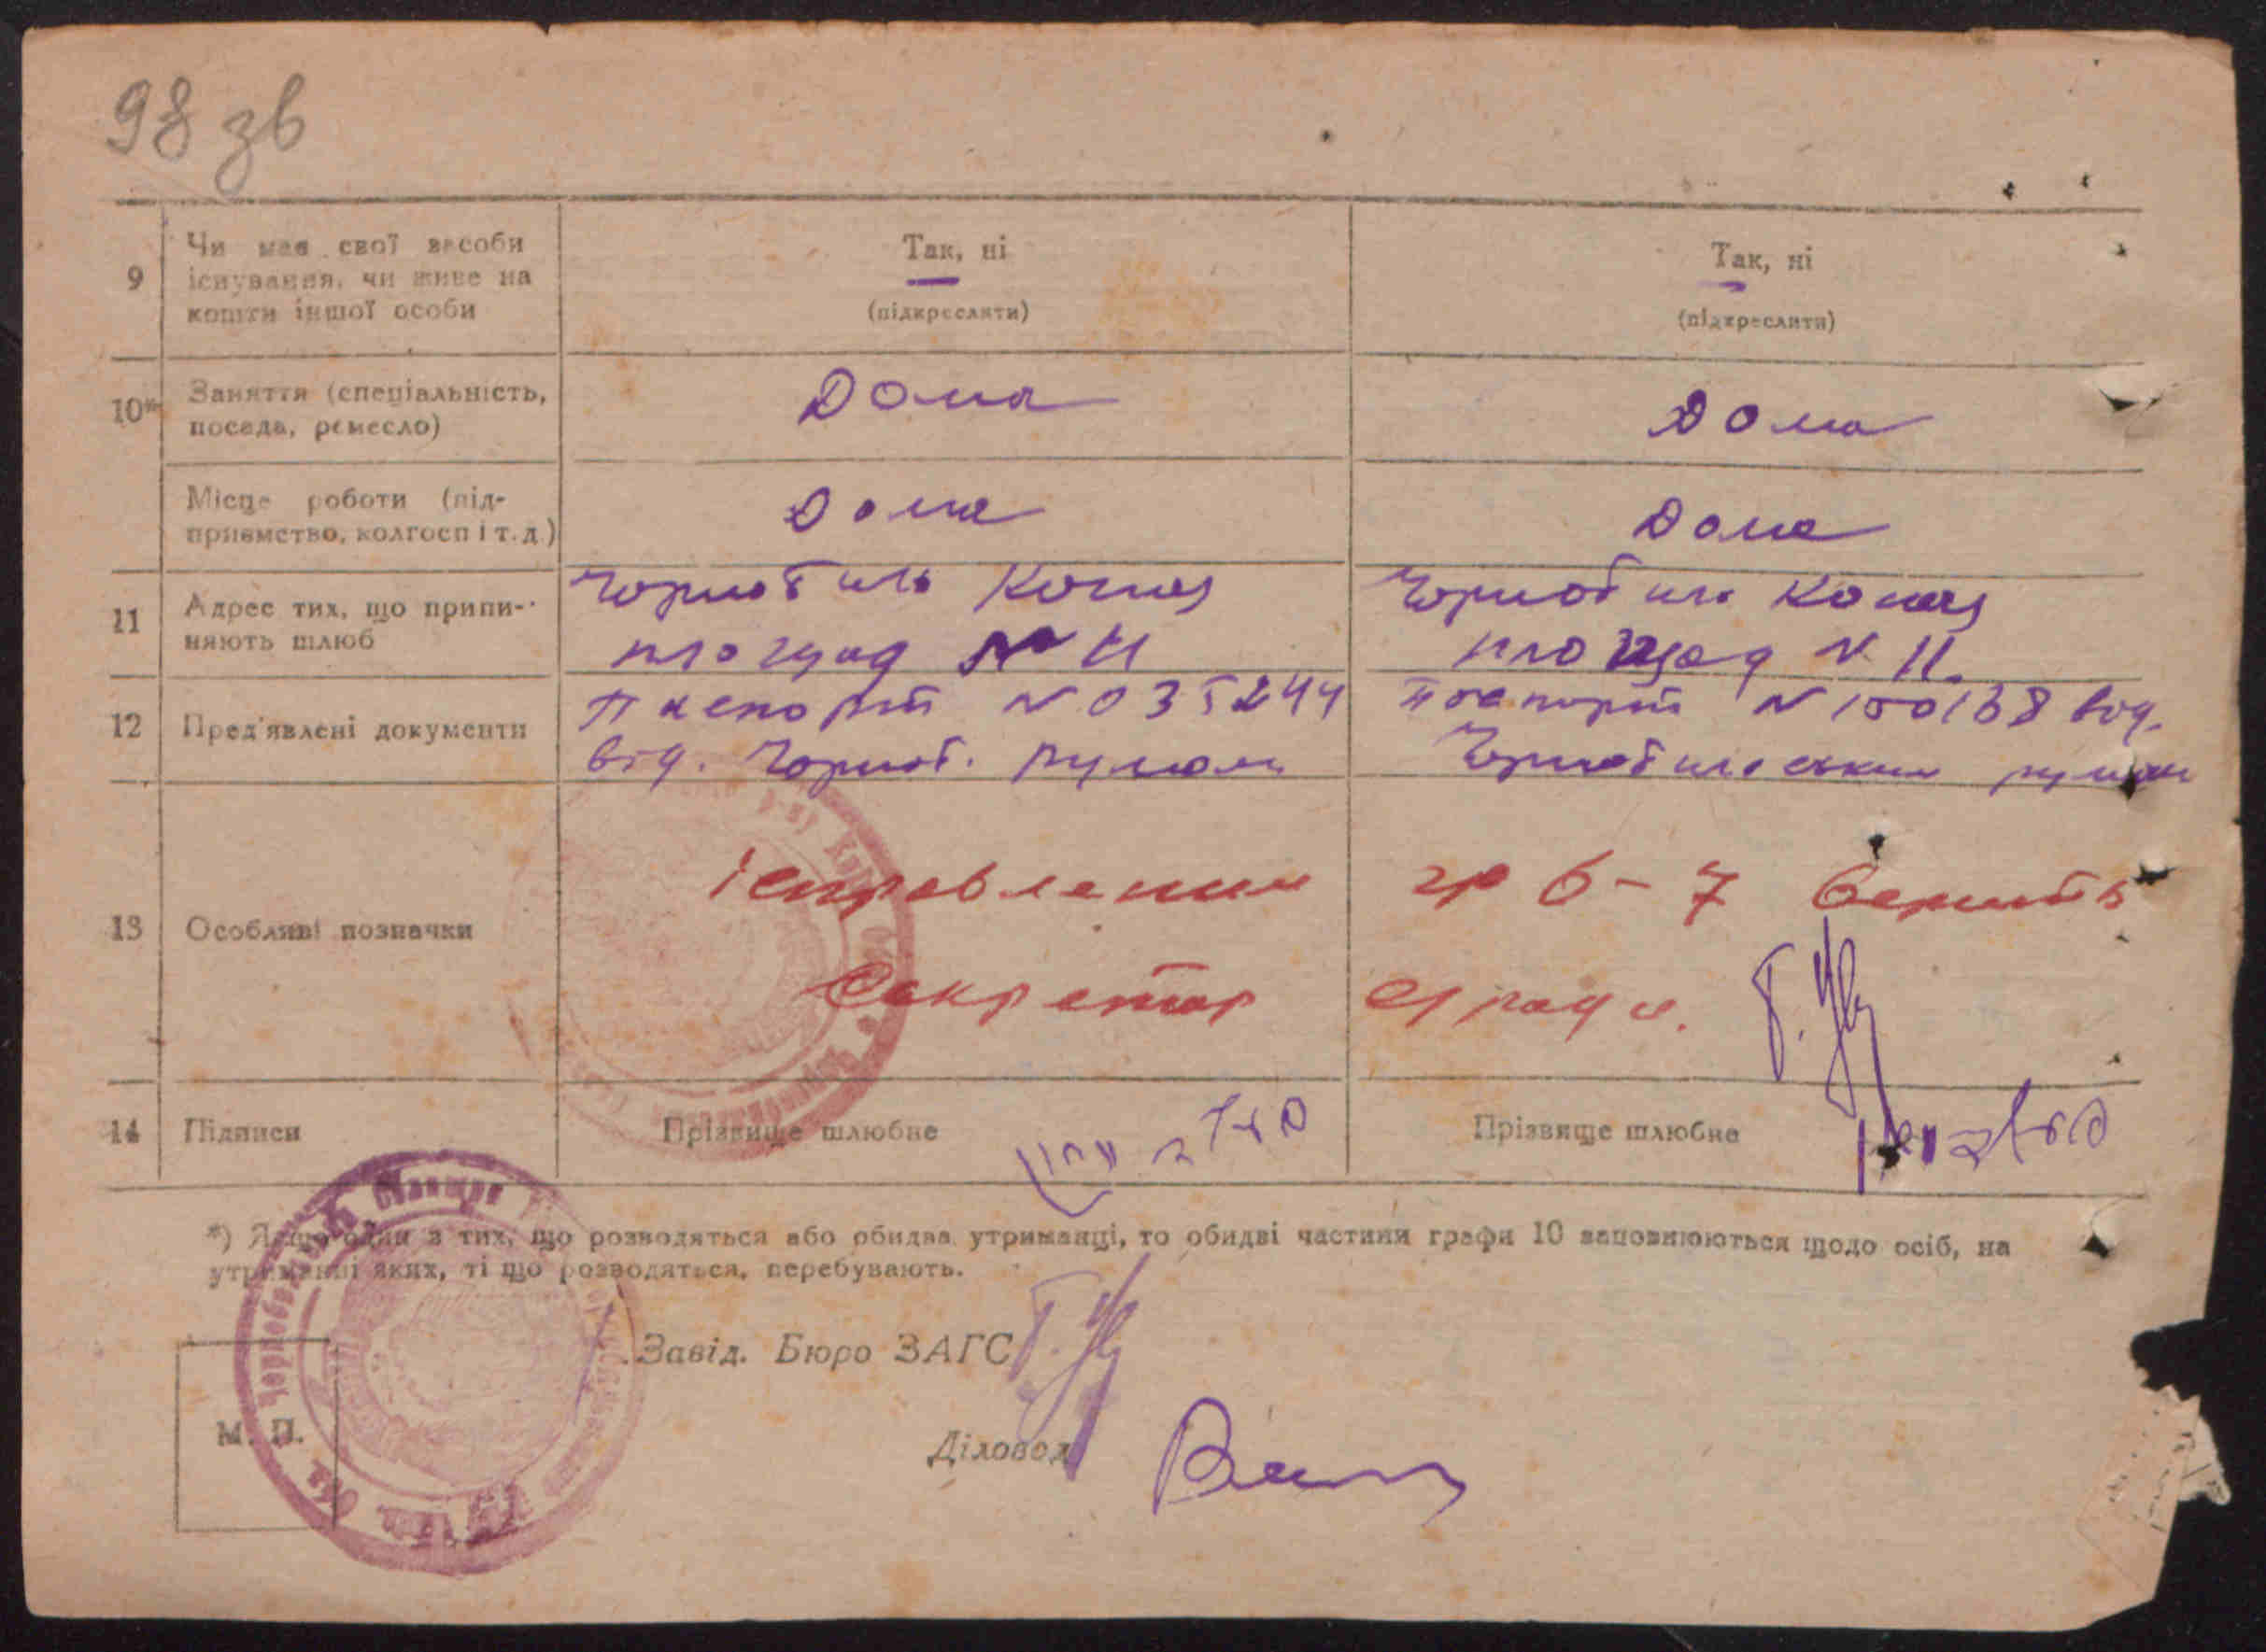 98 зв
9
Чи має свої засоби
існування, чи живе на
кошти іншої особи
Так, ні
(підкреслити)
Так, ні
(підкреслити)
10*
Заняття (спеціальність,
посада, ремесло)
Дома
Дома
Місце роботи (під-
приємство, колгосп і т. д.)
Дома
Дома
11
Адрес тих, що припи-
няють шлюб
Чорнобиль
площад № 11
Чорнобиль
площад № 11.
12
Пред'явлені документи
Паспорт № 035244
від. Чорноб.
Паспорт № 150138 від.
Чорнобильским
13
Особливі позначки
ісправлении гр 6-7 верить
Секретар с/ради.
14
Підписи
Прізвище шлюбне
Прізвище шлюбне
*) Якщо один з тих, що розводяться або обидва утриманці, то обидві частини графи 10 заповнюються щодо осіб, на
утриманні яких, ті що розводяться, перебувають.
Завід. Бюро ЗАГС
Діловод
М. П.